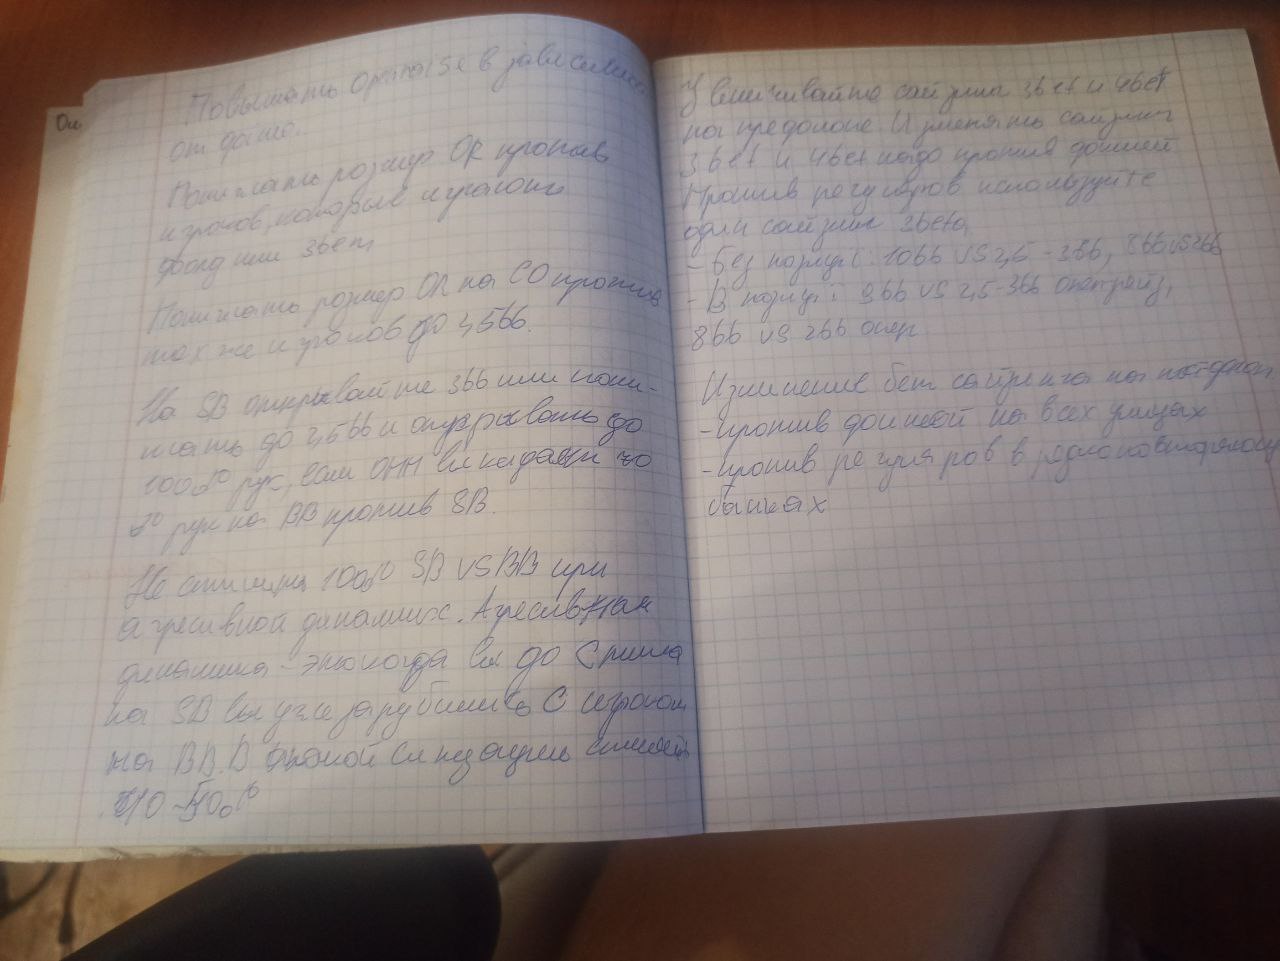 Повышать openraise в зависимости
от
Понижать размер OR против
игроков, которые играют
фолд или 3bet
Понижать размер OR на CO против
тах же игроков до 2,5бб.
На SB открывайте 3бб или пони-
жать до 2,5бб и открывать до
100% рук, если ОНИ выкидают 70
% рук на BB против SB.
Не 100% SB VS BB при
агресивной динамике. Агресивная
динамика - это когда вы до
на SB вы уже зарубились с игроком
на BB. В такой ситуации
40-50%
Ou
Увеличивайте сайзинг 3bet и 4bet
на префлопе. Изменять сайзинг
3bet и 4bet надо против фишей
Против регуляров используйте
один сайзинг 3beta
- без позиц: 10бб VS 2,5-3бб, 8бб VS 2бб
- В позиц: 9бб VS 2,5-3бб опенрейз,
8бб VS 2бб опер
Изменение бет сайзинга на
- против фишей на всех улицах
- против регуляров в
банках